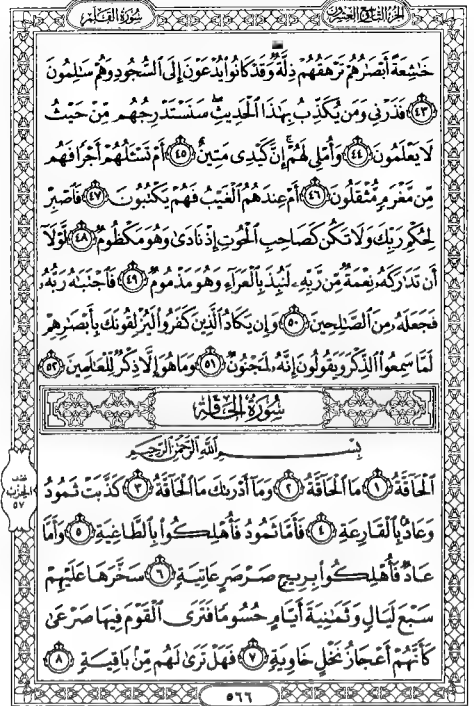 سُورَةُ القَلَمِ
الجزء التاسع والعشرون
خَٰشِعَةً أَبۡصَٰرُهُمۡ تَرۡهَقُهُمۡ ذِلَّةٞۖ وَقَدۡ كَانُواْ يُدۡعَوۡنَ إِلَى ٱلسُّجُودِ وَهُمۡ سَٰلِمُونَ
٤٣ فَذَرۡنِي وَمَن يُكَذِّبُ بِهَٰذَا ٱلۡحَدِيثِۖ سَنَسۡتَدۡرِجُهُم مِّنۡ حَيۡثُ
لَا يَعۡلَمُونَ ٤٤ وَأُمۡلِي لَهُمۡۚ إِنَّ كَيۡدِي مَتِينٌ ٤٥ أَمۡ تَسۡـَٔلُهُمۡ أَجۡرٗا فَهُم
مِّن مَّغۡرَمٖ مُّثۡقَلُونَ ٤٦ أَمۡ عِندَهُمُ ٱلۡغَيۡبُ فَهُمۡ يَكۡتُبُونَ ٤٧ فَٱصۡبِرۡ
لِحُكۡمِ رَبِّكَ وَلَا تَكُن كَصَاحِبِ ٱلۡحُوتِ إِذۡ نَادَىٰ وَهُوَ مَكۡظُومٞ ٤٨ لَّوۡلَآ
أَن تَدَٰرَكَهُۥ نِعۡمَةٞ مِّن رَّبِّهِۦ لَنُبِذَ بِٱلۡعَرَآءِ وَهُوَ مَذۡمُومٞ ٤٩ فَٱجۡتَبَٰهُ رَبُّهُۥ
فَجَعَلَهُۥ مِنَ ٱلصَّٰلِحِينَ ٥٠ وَإِن يَكَادُ ٱلَّذِينَ كَفَرُواْ لَيُزۡلِقُونَكَ بِأَبۡصَٰرِهِمۡ
لَمَّا سَمِعُواْ ٱلذِّكۡرَ وَيَقُولُونَ إِنَّهُۥ لَمَجۡنُونٞ ٥١ وَمَا هُوَ إِلَّا ذِكۡرٞ لِّلۡعَٰلَمِينَ ٥٢
سُورَةُ الحَاقَّةِ
بِسۡمِ ٱللَّهِ ٱلرَّحۡمَٰنِ ٱلرَّحِيمِ
ٱلۡحَآقَّةُ ١ مَا ٱلۡحَآقَّةُ ٢ وَمَآ أَدۡرَىٰكَ مَا ٱلۡحَآقَّةُ ٣ كَذَّبَتۡ ثَمُودُ
وَعَادُۢ بِٱلۡقَارِعَةِ ٤ فَأَمَّا ثَمُودُ فَأُهۡلِكُواْ بِٱلطَّاغِيَةِ ٥ وَأَمَّا
عَادٞ فَأُهۡلِكُواْ بِرِيحٖ صَرۡصَرٍ عَاتِيَةٖ ٦ سَخَّرَهَا عَلَيۡهِمۡ
سَبۡعَ لَيَالٖ وَثَمَٰنِيَةَ أَيَّامٍ حُسُومٗا فَتَرَى ٱلۡقَوۡمَ فِيهَا صَرۡعَىٰ
كَأَنَّهُمۡ أَعۡجَازُ نَخۡلٍ خَاوِيَةٖ ٧ فَهَلۡ تَرَىٰ لَهُم مِّنۢ بَاقِيَةٖ ٨
الحزب
٥٧
٥٦٦